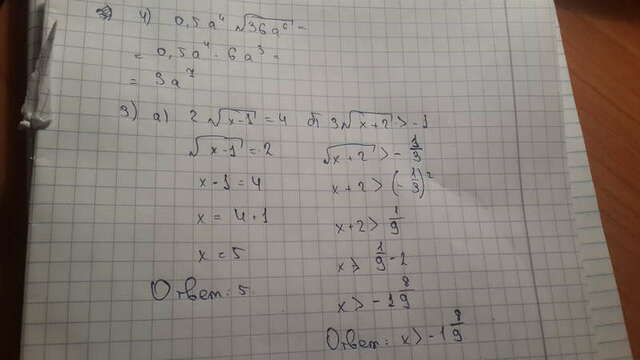 4) 0,5a⁴ √36a⁶ =
= 0,5a⁴ · 6a³ =
= 3a⁷
3) а) 2√x-1 = 4
√x-1 = 2
x-1 = 4
x = 4+1
x = 5
Ответ: 5
б) 3√x+2 > -1
√x+2 > - 1/3
x+2 > (- 1/3)²
x+2 > 1/9
x > 1/9 - 2
x > -1 8/9
Ответ: x > -1 8/9